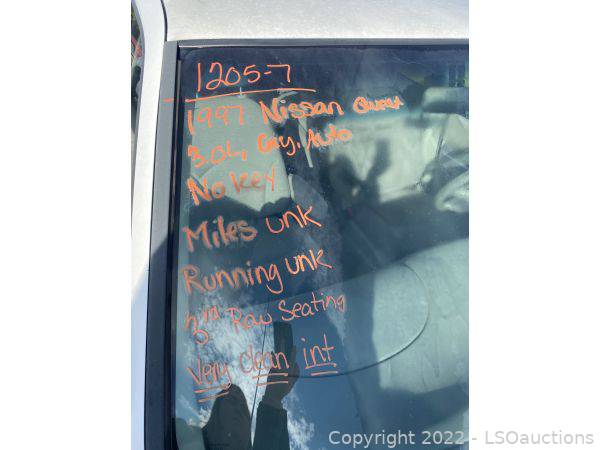 1205-7
1997 Nissan Quest
3.0L, Gry, Auto
No key
Miles unk
Running unk
3rd Row Seating
Very clean int
Copyright 2022 - LSOauctions